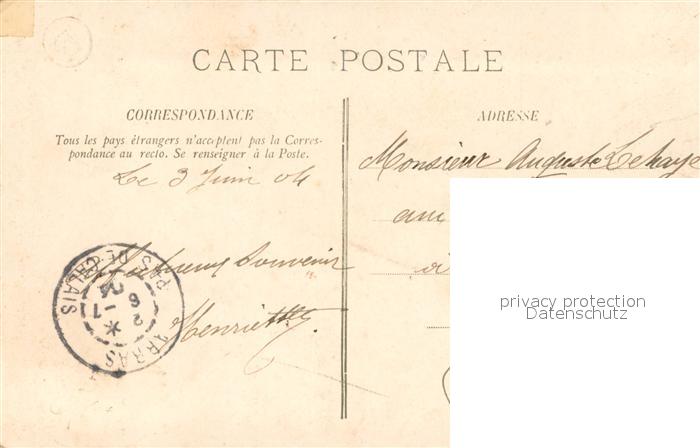 CARTE POSTALE
CORRESPONDANCE
Tous les pays étrangers n'acceptent pas la Corres-
pondance au recto. Se renseigner à la Poste.
Le 3 Juin 04
Souvenir
Henriette
ARRAS
PAS DE CALAIS
ADRESSE
Monsieur Auguste Lehaye
au
à
privacy protection
Datenschutz